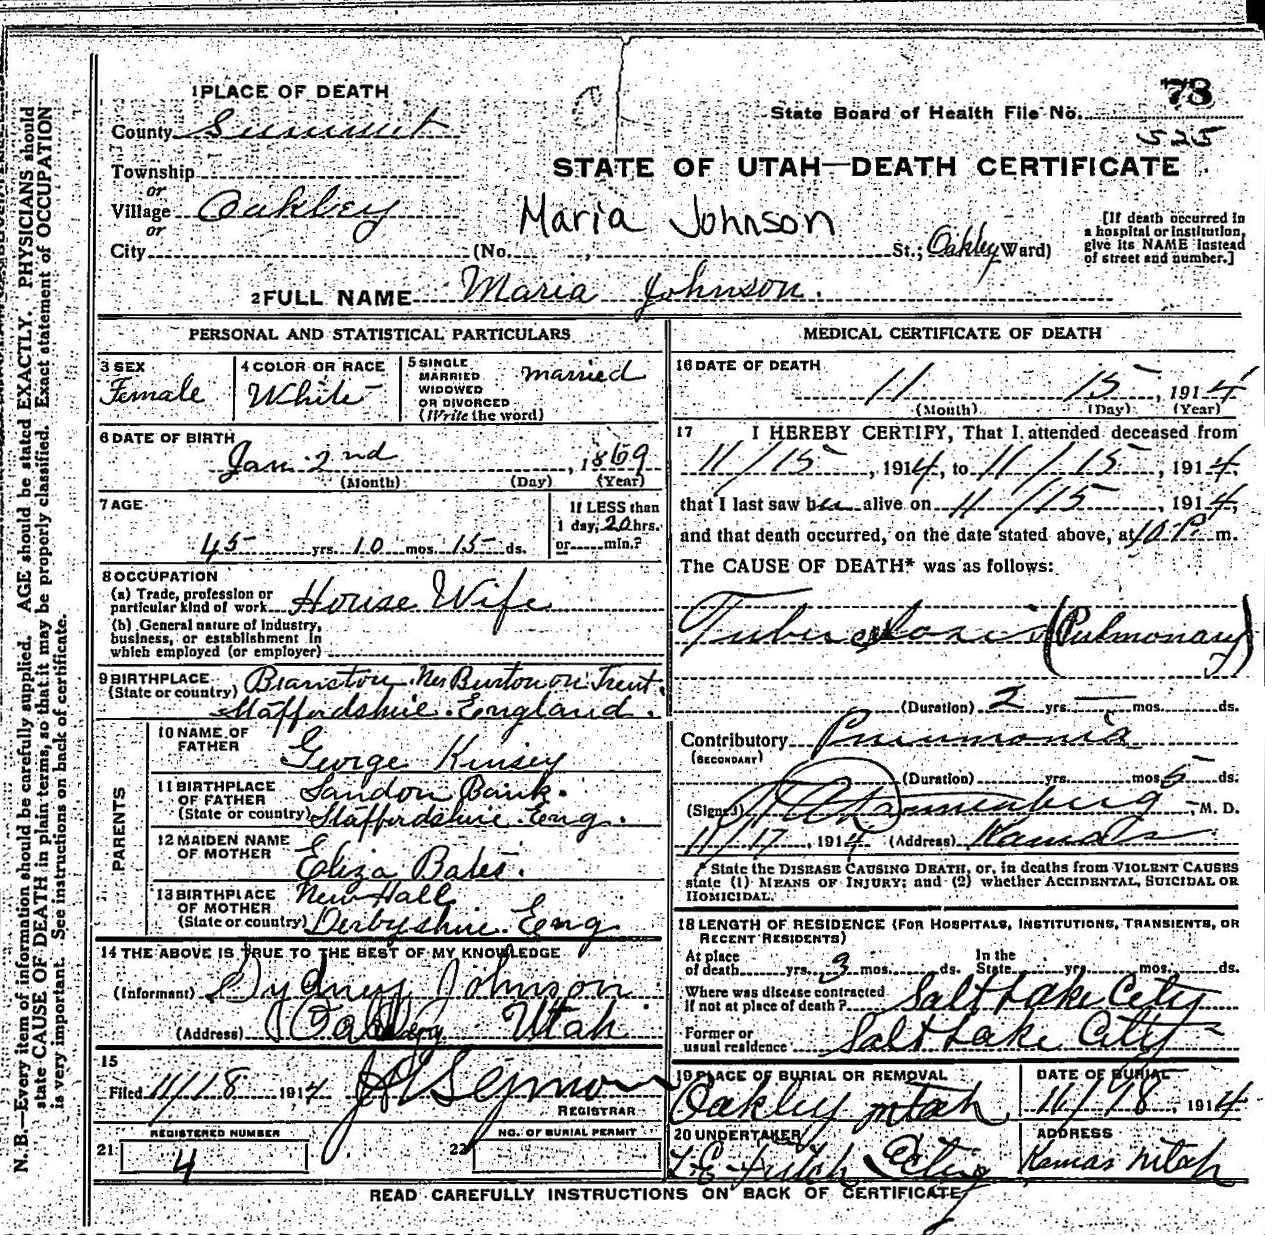 N. B.—Every item of information should be carefully supplied. AGE should be stated EXACTLY. PHYSICIANS should
state CAUSE OF DEATH in plain terms, so that it may be properly classified. Exact statement of OCCUPATION
is very important. See instructions on back of certificate.
1 PLACE OF DEATH
County Summit
Township
or
Village Oakley
or
City
State Board of Health File No. 78
525
STATE OF UTAH—DEATH CERTIFICATE
Maria Johnson
(No. , St.; Oakley Ward)
[If death occurred in
a hospital or institution,
give its NAME instead
of street and number.]
2 FULL NAME Maria Johnson.
PERSONAL AND STATISTICAL PARTICULARS
3 SEX
Female
4 COLOR OR RACE
White
5 SINGLE
MARRIED
WIDOWED
OR DIVORCED
(Write the word)
married
6 DATE OF BIRTH
Jan 2nd, 1869
(Month) (Day) (Year)
7 AGE
45 yrs. 10 mos. 15 ds.
If LESS than
1 day, 20 hrs.
or min.?
8 OCCUPATION
(a) Trade, profession or
particular kind of work House Wife
(b) General nature of industry,
business, or establishment in
which employed (or employer)
9 BIRTHPLACE
(State or country) Branston Nr Burton on Trent.
Staffordshire. England.
PARENTS
10 NAME OF
FATHER
George Kinsey
11 BIRTHPLACE
OF FATHER
(State or country)
Sandon Bank.
Staffordshire. Eng.
12 MAIDEN NAME
OF MOTHER
Eliza Bates.
13 BIRTHPLACE
OF MOTHER
(State or country)
New Hall
Derbyshire. Eng
14 THE ABOVE IS TRUE TO THE BEST OF MY KNOWLEDGE
(Informant) Sydney Johnson
(Address) Oakley Utah
15
Filed 11/18 1914 Seymour
REGISTRAR
REGISTERED NUMBER
21 4
NO. OF BURIAL PERMIT
22
MEDICAL CERTIFICATE OF DEATH
16 DATE OF DEATH
11 15, 1914
(Month) (Day) (Year)
17 I HEREBY CERTIFY, That I attended deceased from
11/15, 1914, to 11/15, 1914.
that I last saw her alive on 11/15, 1914,
and that death occurred, on the date stated above, at 10 P. m.
The CAUSE OF DEATH* was as follows:
Tuberculosis (Pulmonary)
(Duration) 2 yrs. — mos. ds.
Contributory Pneumonia
(SECONDARY)
(Duration) yrs. mos. 5 ds.
(Signed) Dannenberg, M. D.
11/17, 1914 (Address) Kamas
State the DISEASE CAUSING DEATH, or, in deaths from VIOLENT CAUSES
state (1) MEANS OF INJURY; and (2) whether ACCIDENTAL, SUICIDAL OR
HOMICIDAL.
18 LENGTH OF RESIDENCE (FOR HOSPITALS, INSTITUTIONS, TRANSIENTS, OR
RECENT RESIDENTS)
At place
of death yrs. 3 mos. ds.
In the
State yrs. mos. ds.
Where was disease contracted
if not at place of death? Salt Lake City
Former or
usual residence Salt Lake City
19 PLACE OF BURIAL OR REMOVAL
Oakley Utah
DATE OF BURIAL
11/18, 1914
20 UNDERTAKER
Acting
ADDRESS
Kamas Utah
READ CAREFULLY INSTRUCTIONS ON BACK OF CERTIFICATE